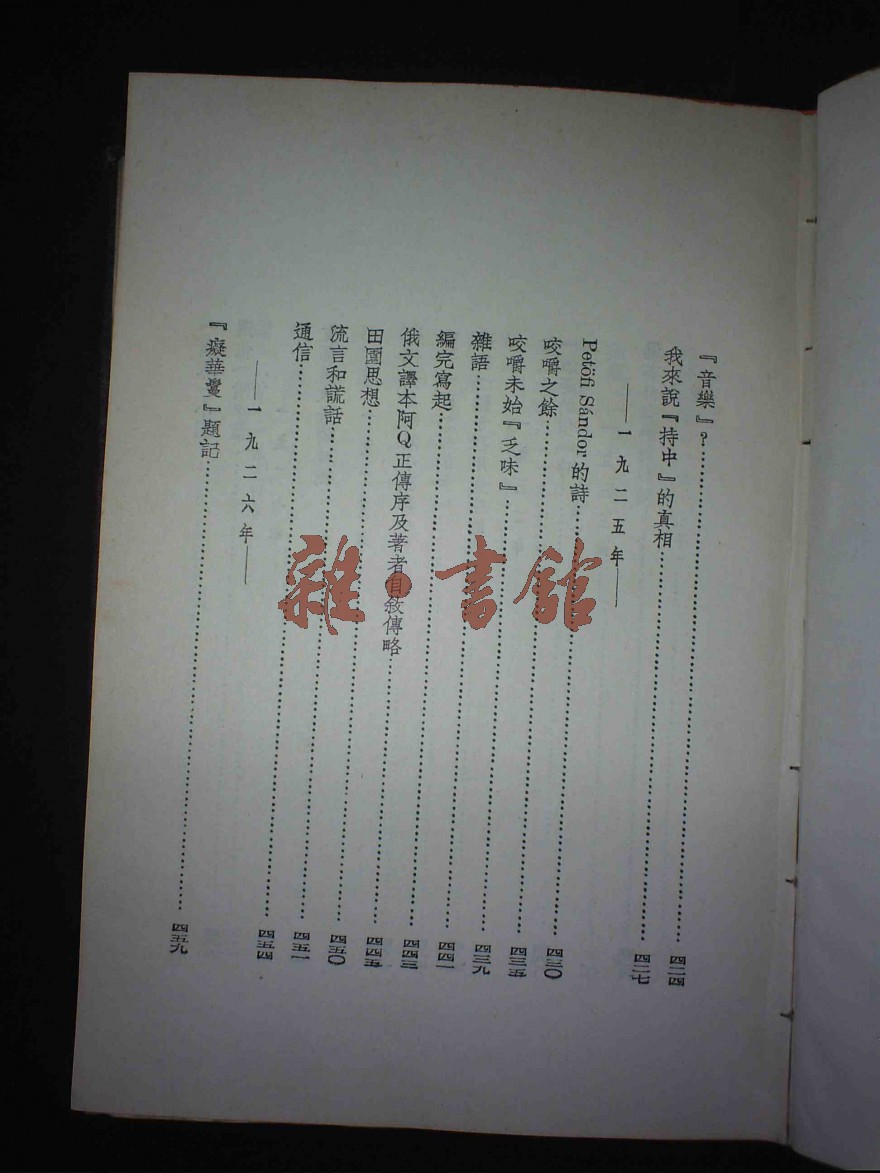 『音樂』?……四二四
我來說『持中』的真相……四二七
——一九二五年——
Petöfi Sándor 的詩……四三〇
咬嚼之餘……四三五
咬嚼未始『乏味』……四三九
雜語……四四一
編完寫起……四四三
俄文譯本阿Q正傳序及著者自敘傳略……四四五
田園思想……四五〇
流言和謊話……四五一
通信……四五四
——一九二六年——
『癡華鬘』題記……四五九
雜·書館